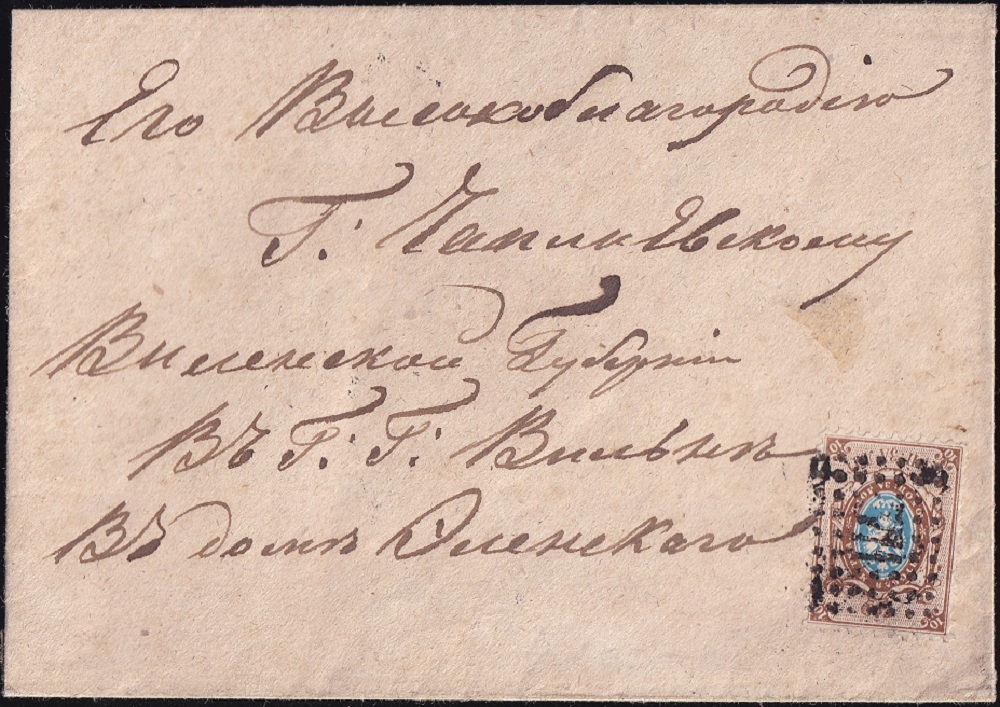 Его Высокоблагородію
Г: Чаплиевскому
Виленской Губерніи
Въ Г: Г: Вильнѣ
Въ домѣ Оленскаго
10
10
10